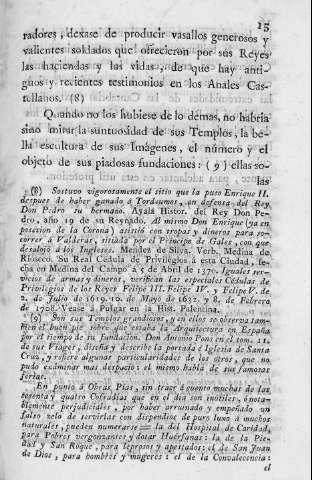 15
radores, dexase de producir vasallos generosos y
valientes soldados que ofrecieron por sus Reyes
las haciendas y las vidas, de que hay anti-
guos y recientes testimonios en los Anales Cas-
tellanos. (8)
Quando no los hubiese de lo demas, no habria
sino mirar la suntuosidad de sus Templos, la be-
lla escultura de sus Imágenes, el número y el
objeto de sus piadosas fundaciones: (9) ellas so-
las
(8) Sostuvo vigorosamente el sitio que la puso Enrique II.
despues de haber ganado á Tordaumos, en defensa del Rey
Don Pedro su hermano. Ayala Histor. del Rey Don Pe-
dro, año 19 de su Reynado. Al mismo Don Enrique (ya en
posesion de la Corona) asistió con tropas y dineros para so-
correr á Valderas, sitiada por el Príncipe de Gales, con que
desalojó á los Ingleses. Mendez de Silva, Verb. Medina de
Rioseco. Su Real Cédula de Privilegios á esta Ciudad, fe-
cha en Medina del Campo á 5 de Abril de 1370. Iguales ser-
vicios de armas y dineros, verifican las especiales Cédulas de
Privilegios de los Reyes Felipe III. Felipe IV. y Felipe V. de
2. de Julio de 1619. 10. de Mayo de 1632. y 8. de Febrero
de 1708. Vease á Pulgar en la Hist. Palentina.
(9) Son sus Templos grandiosos, y en ellos se observa tam-
bien el buen pie sobre que estaba la Arquitectura en España
por el tiempo de su fundacion. Don Antonio Pons en el tom. 12.
de sus Viages, diseña y describe la portada é Iglesia de Santa
Cruz, y refiere algunas particularidades de los otros, que no
pudo examinar mas despacio: el mismo habla de sus famosas
Ferias.
En punto á Obras Pias, sin traer á cuento muchas de las
sesenta y quatro Cofradías que en el dia son inútiles, ó nota-
blemente perjudiciales, por haber arruinado y empeñado un
falso zelo de servirlas con dispendios de puro luxo á muchos
naturales, pueden numerarse la del Hospital de Caridad,
para Pobres vergonzantes y dotar Huérfanas: la de la Pie-
dad y San Roque, para leprosos y apestados: el de San Juan
de Dios, para hombres y mugeres: el de la Convalecencia:
el